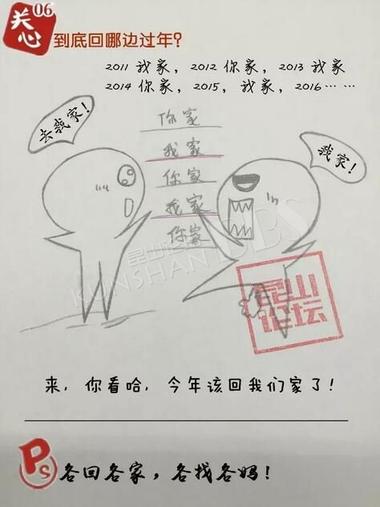 关心
06
到底回哪边过年？
2011 我家，2012 你家，2013 我家
2014 你家，2015，我家，2016……
去我家！
你家
我家
你家
我家
你家
我家！
昆山论坛
KUNSHAN BBS
昆山
论坛
来，你看哈，今年该回我们家了！
Ps
各回各家，各找各妈！